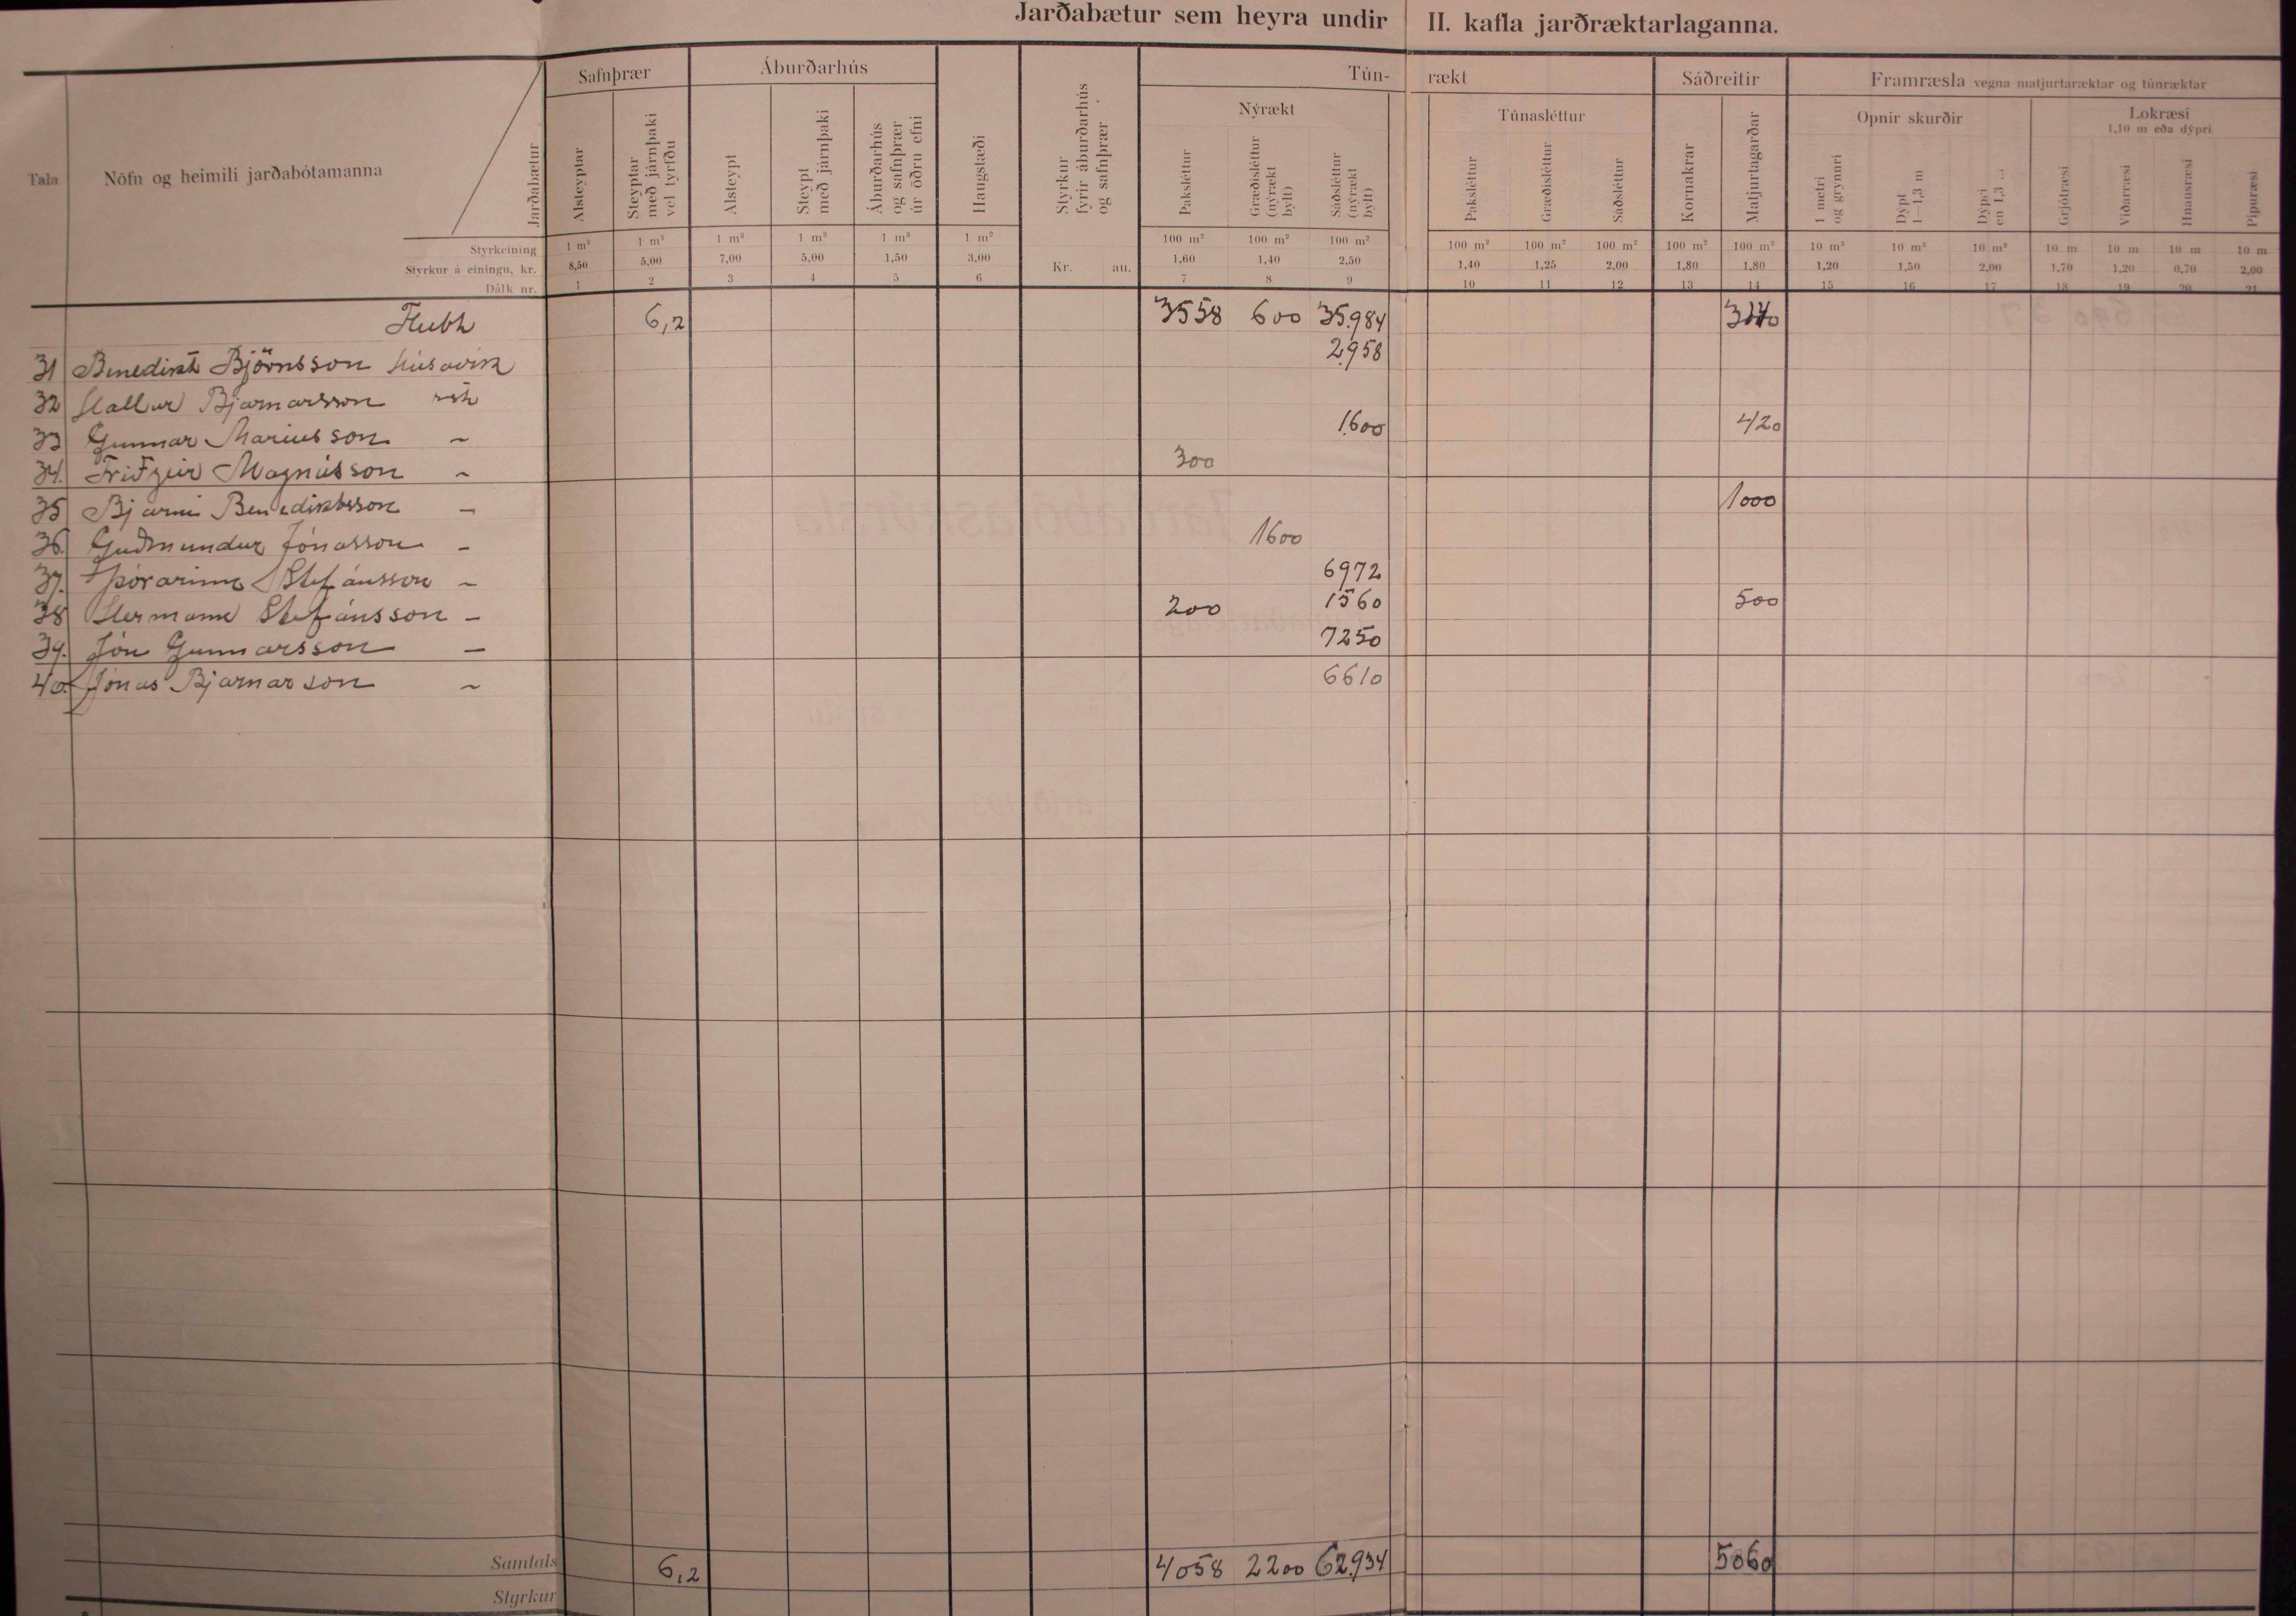 Jarðabætur sem heyra undir II. kafla jarðræktarlaganna.
Tala
Nöfn og heimili jarðabótamanna
Jarðabætur
Styrkeining
Styrkur á einingu, kr.
Dálk nr.
Safnþrær Áburðarhús Tún- rækt Sáðreitir Framræsla vegna matjurtaræktar og túnræktar
Nýrækt Túnasléttur Opnir skurðir Lokræsi
1,10 m eða dýpri
Alsteyptar
Steyptar með járnþaki vel tyrfðu
Alsteypt
Steypt með járnþaki
Áburðarhús og safnþrær úr öðru efni
Haugstæði
Styrkur fyrir áburðarhús og safnþrær
Þaksléttur
Græðisléttur (nýrækt bylt)
Sáðsléttur (nýrækt bylt)
Þaksléttur
Græðisléttur
Sáðsléttur
Kornakrar
Matjurtagarðar
1 metri og grynnri
Dýpt 1—1,3 m
Dýpri en 1,3 m
Grjótræsi
Viðarræsi
Hnausræsi
Pípuræsi
1 m³ 1 m³ 1 m³ 1 m³ 1 m³ 1 m² 100 m² 100 m² 100 m² 100 m² 100 m² 100 m² 100 m² 100 m² 10 m³ 10 m³ 10 m³ 10 m 10 m 10 m 10 m
8,50 5,00 7,00 5,00 1,50 3,00 Kr. au. 1,60 1,40 2,50 1,40 1,25 2,00 1,80 1,80 1,20 1,50 2,00 1,70 1,20 0,70 2,00
1 2 3 4 5 6 7 8 9 10 11 12 13 14 15 16 17 18 19 20 21
Flutt 6,2 3558 600 35.984
31 Benedikt Björnsson Húsavík 2958
32 Hallur Bjarnarsson
33 Gunnar Maríusson ~ 1600 420
34. Friðgeir Magnússon ~ 300
35 Bjarni Benediktsson - 1000
36. Guðmundur Jónasson - 1600
37. Þórarinn Stefánsson - 6972
38 Hermann Stefánsson - 200 1560 500
39. Jón Gunnarsson - 7250
40. Jónas Bjarnarson ~ 6610
Samtals 6,2 4058 2200 62.934 5060
Styrkur